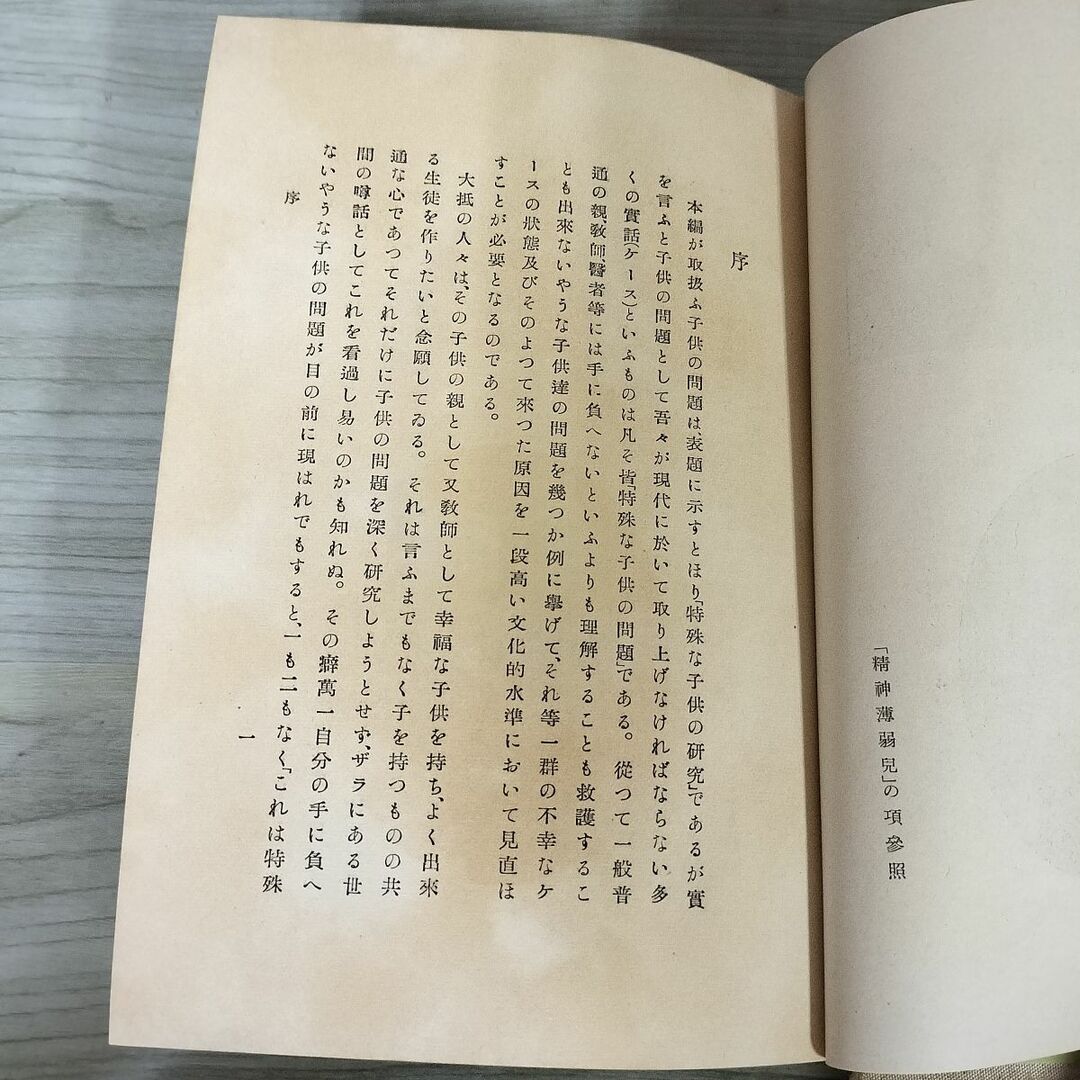 「精神薄弱兒」の項參照
序
本編が取扱ふ子供の問題は、表題に示すとほり「特殊な子供の研究」であるが實
を言ふと子供の問題として吾々が現代に於いて取り上げなければならない多
くの實話(ケース)といふものは凡そ皆「特殊な子供の問題」である。從つて一般普
通の親、教師醫者等には手に負へないといふよりも理解することも救護するこ
とも出來ないやうな子供達の問題を幾つか例に擧げて、それ等一群の不幸なケ
ースの狀態及びそのよつて來つた原因を一段高い文化的水準において見直ほ
すことが必要となるのである。
大抵の人々は、その子供の親として又教師として幸福な子供を持ち、よく出來
る生徒を作りたいと念願してゐる。それは言ふまでもなく子を持つものの共
通な心であつてそれだけに子供の問題を深く研究しようとせず、ザラにある世
間の噂話としてこれを看過し易いのかも知れぬ。その癖萬一自分の手に負へ
ないやうな子供の問題が目の前に現はれでもすると、一も二もなく「これは特殊
序
一